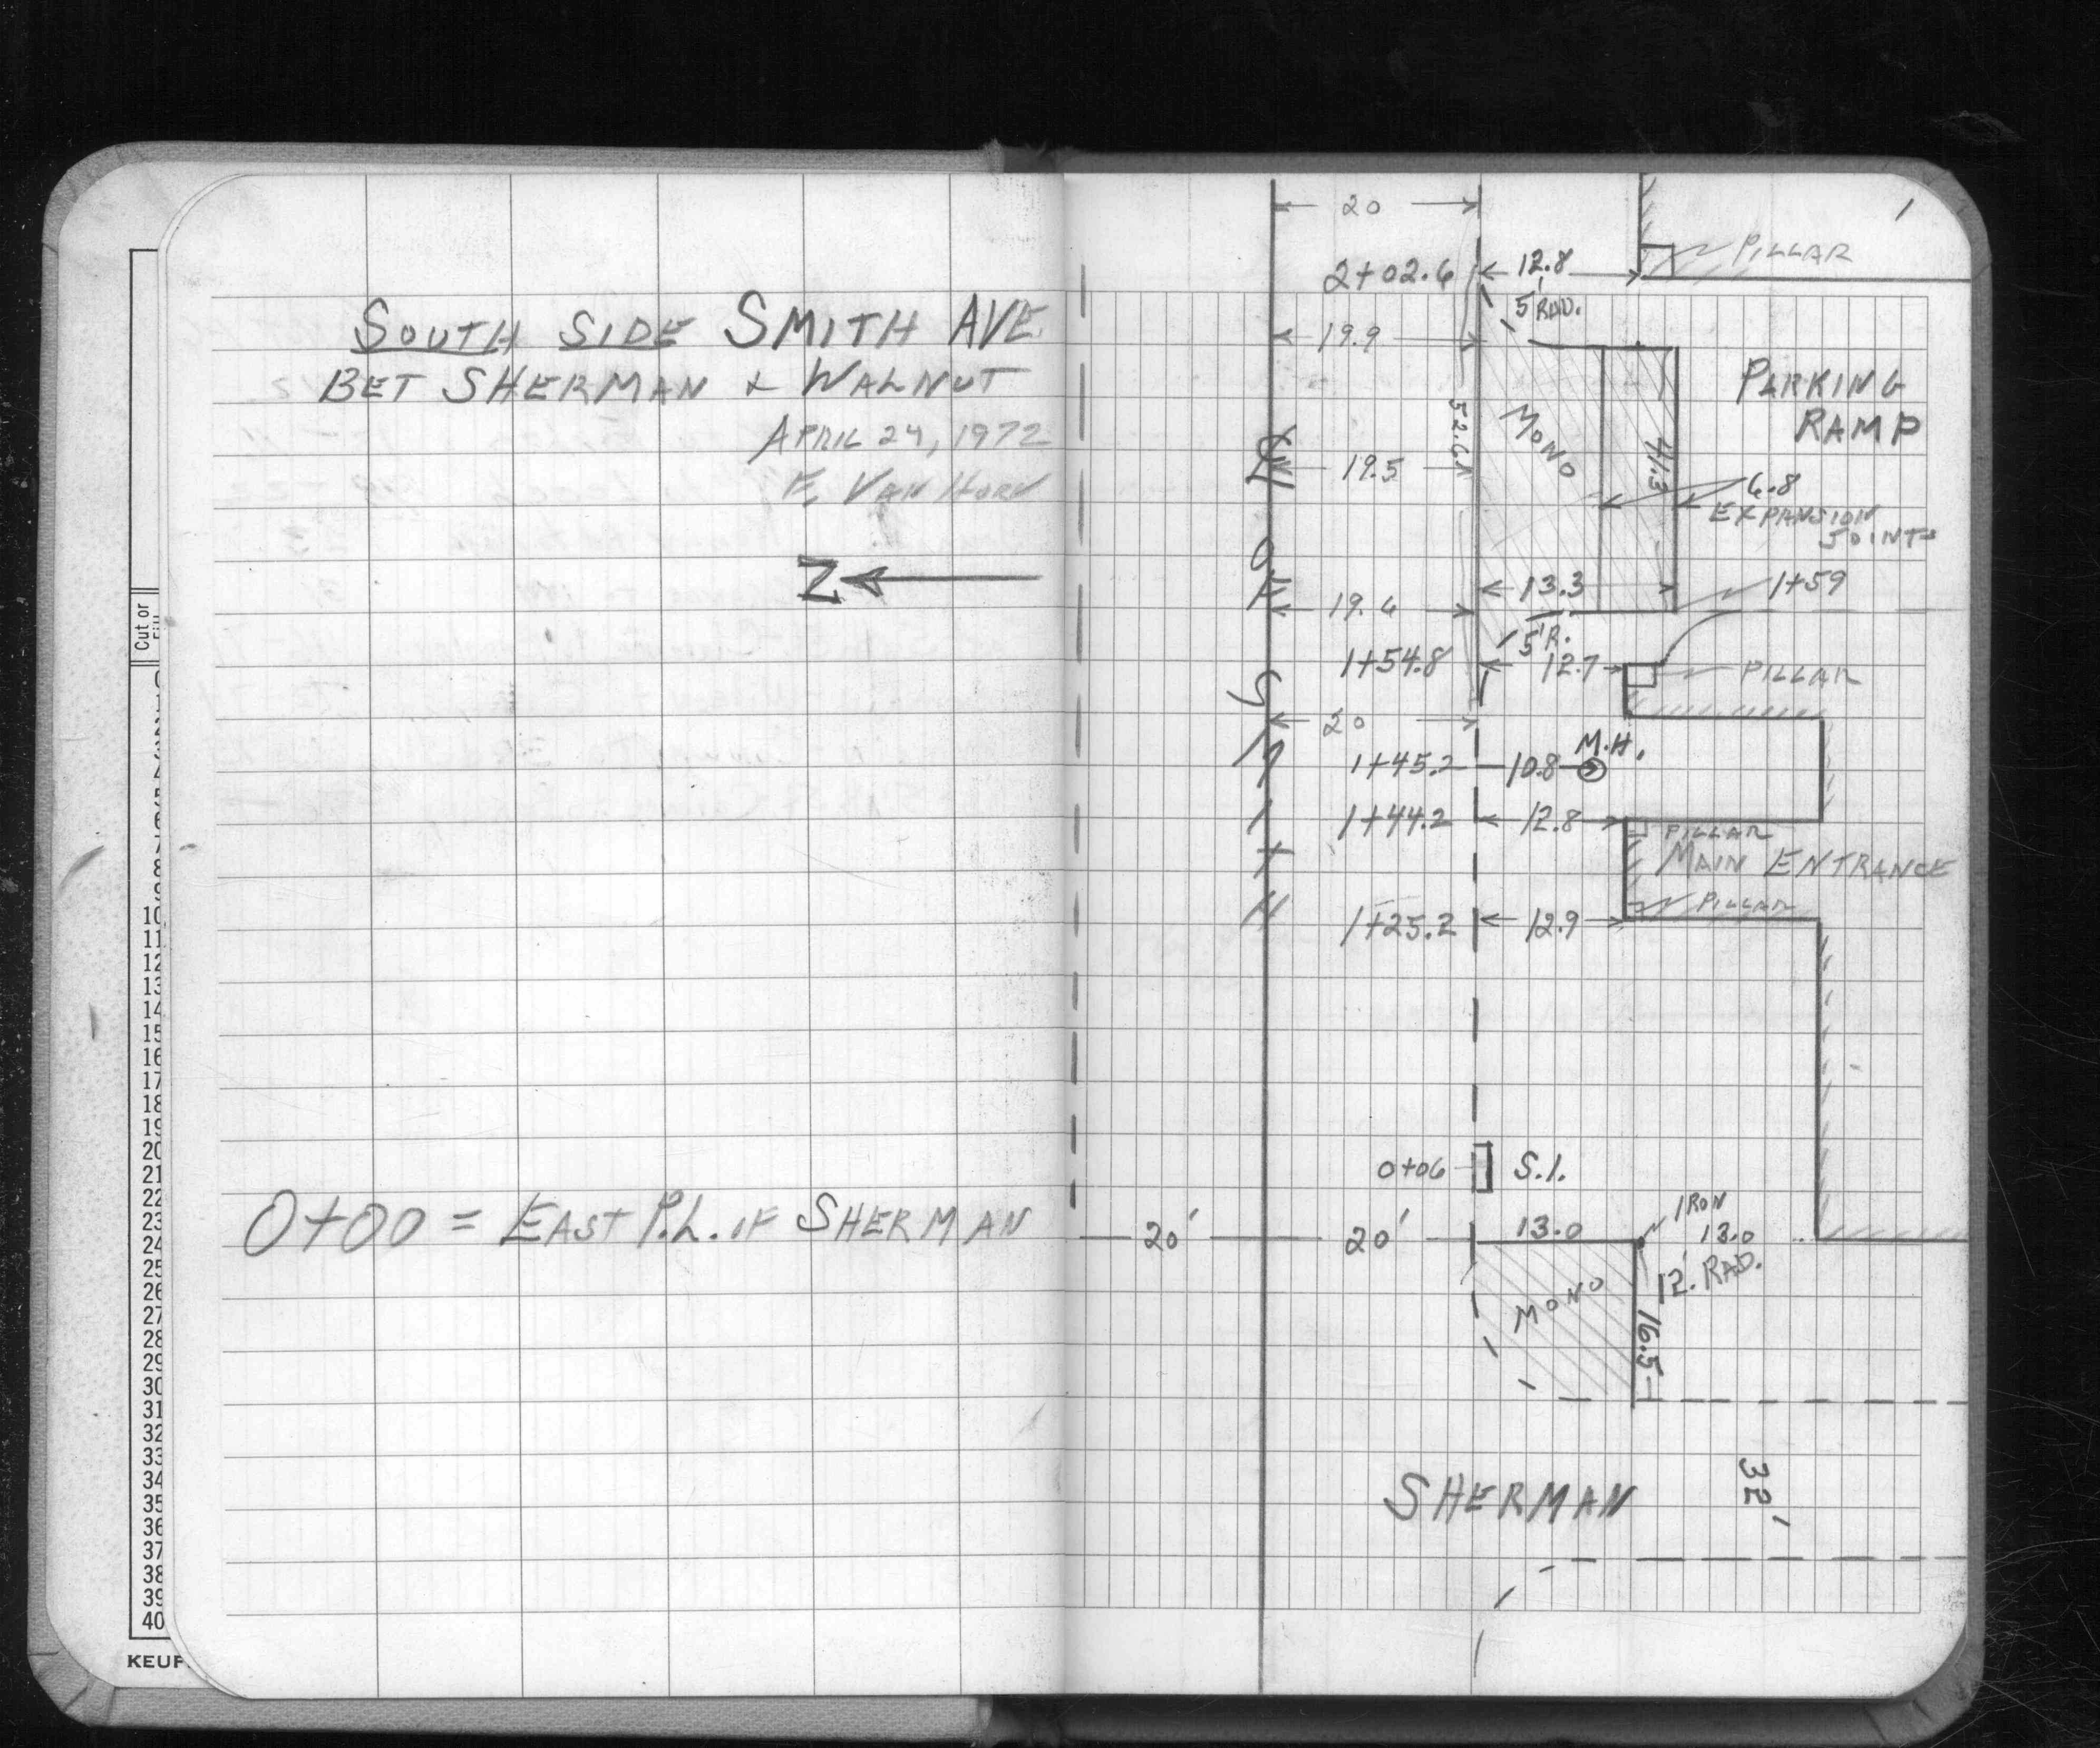 SOUTH SIDE SMITH AVE.
BET SHERMAN & WALNUT
APRIL 24, 1972
F. VAN HORN
Z
0+00 = EAST P.L. OF SHERMAN
Cut or
10
11
12
13
14
15
16
17
18
19
20
21
22
23
24
25
26
27
28
29
30
31
32
33
34
35
36
37
38
39
40
KEUF
1
20
PILLAR
2+02.6 12.8
5' RAD.
19.9
PARKING
RAMP
52.6
MONO
41.3
19.5
6.8
EXPANSION
JOINTS
13.3
1+59
19.6
5' R.
1+54.8 12.7
PILLAR
20
M.H.
1+45.2 10.8
1+44.2 12.8
PILLAR
MAIN ENTRANCE
PILLAR
1+25.2 12.9
℄ OF SMITH
0+06 S.I.
IRON
20' 20' 13.0 13.0
12' RAD.
MONO
16.5
SHERMAN
32'